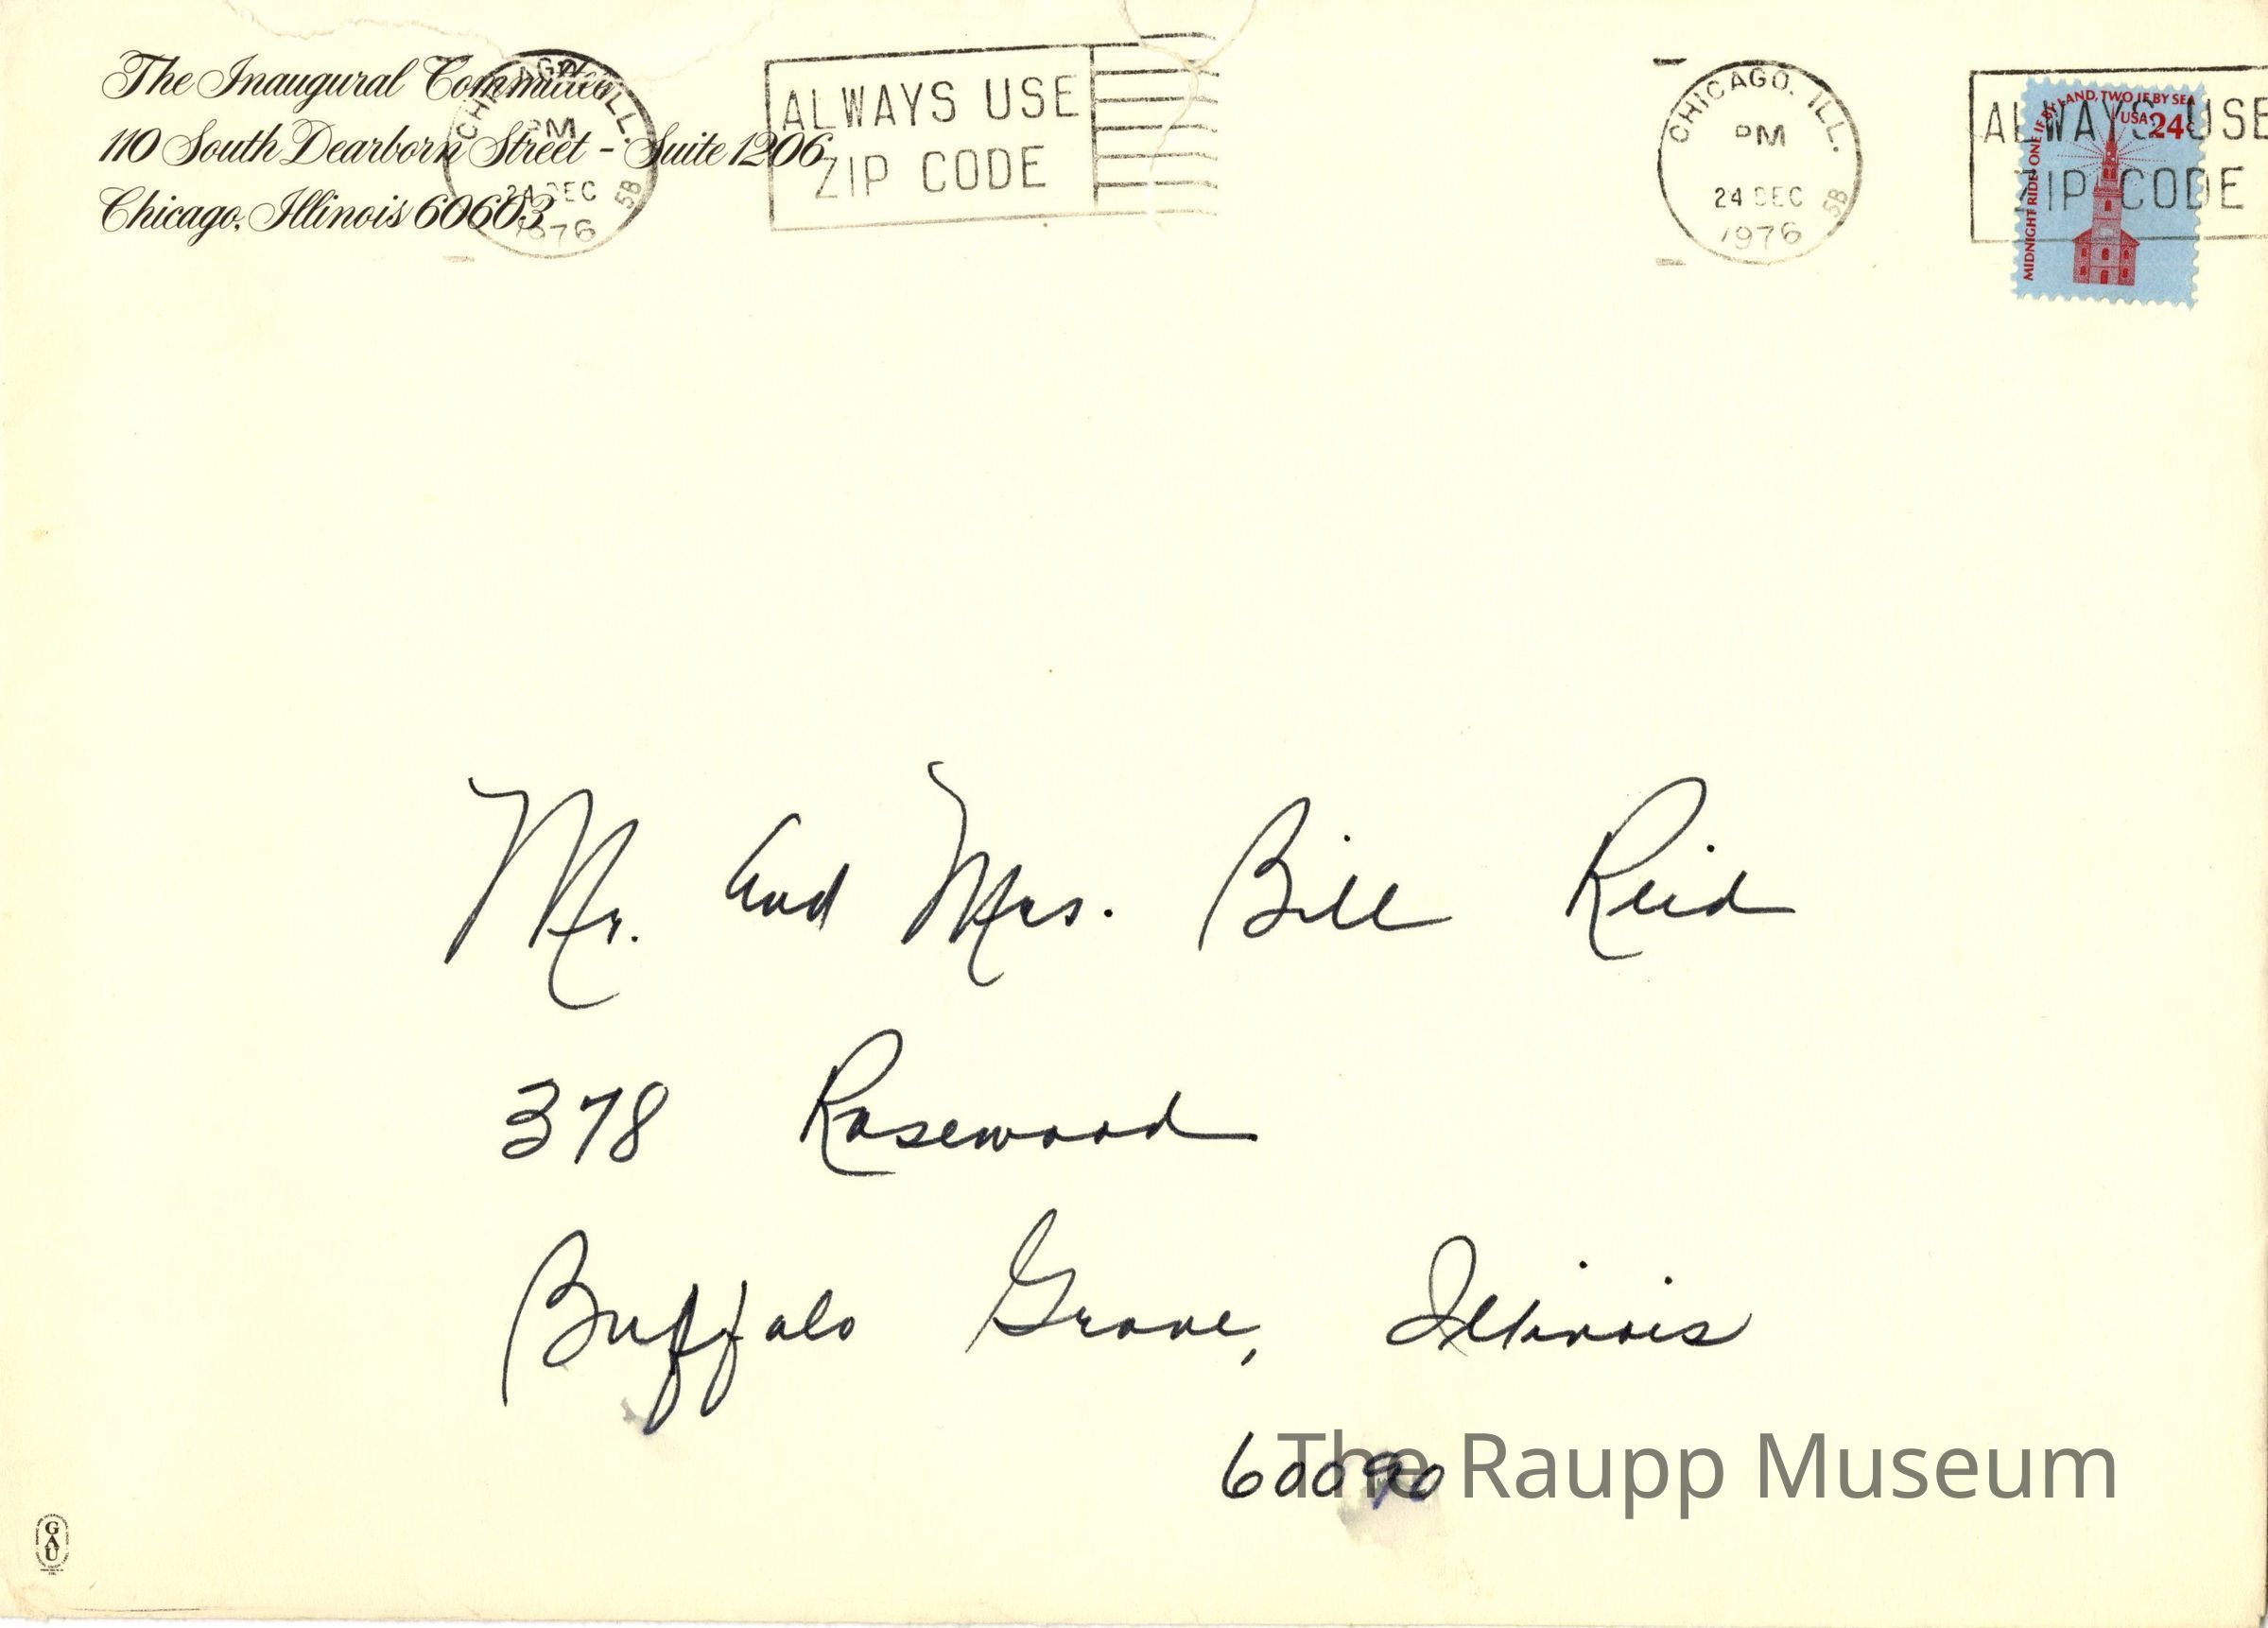 The Inaugural Committee
110 South Dearborn Street - Suite 1206
Chicago, Illinois 60603
CHICAGO, ILL.
PM
24 DEC
1976
5B
ALWAYS USE
ZIP CODE
CHICAGO, ILL.
PM
24 DEC
1976
5B
ALWAYS USE
ZIP CODE
MIDNIGHT RIDE ONE IF BY LAND, TWO IF BY SEA
USA 24c
Mr. and Mrs. Bill Reid
378 Rosewood
Buffalo Grove, Illinois
60090
The Raupp Museum
GAU